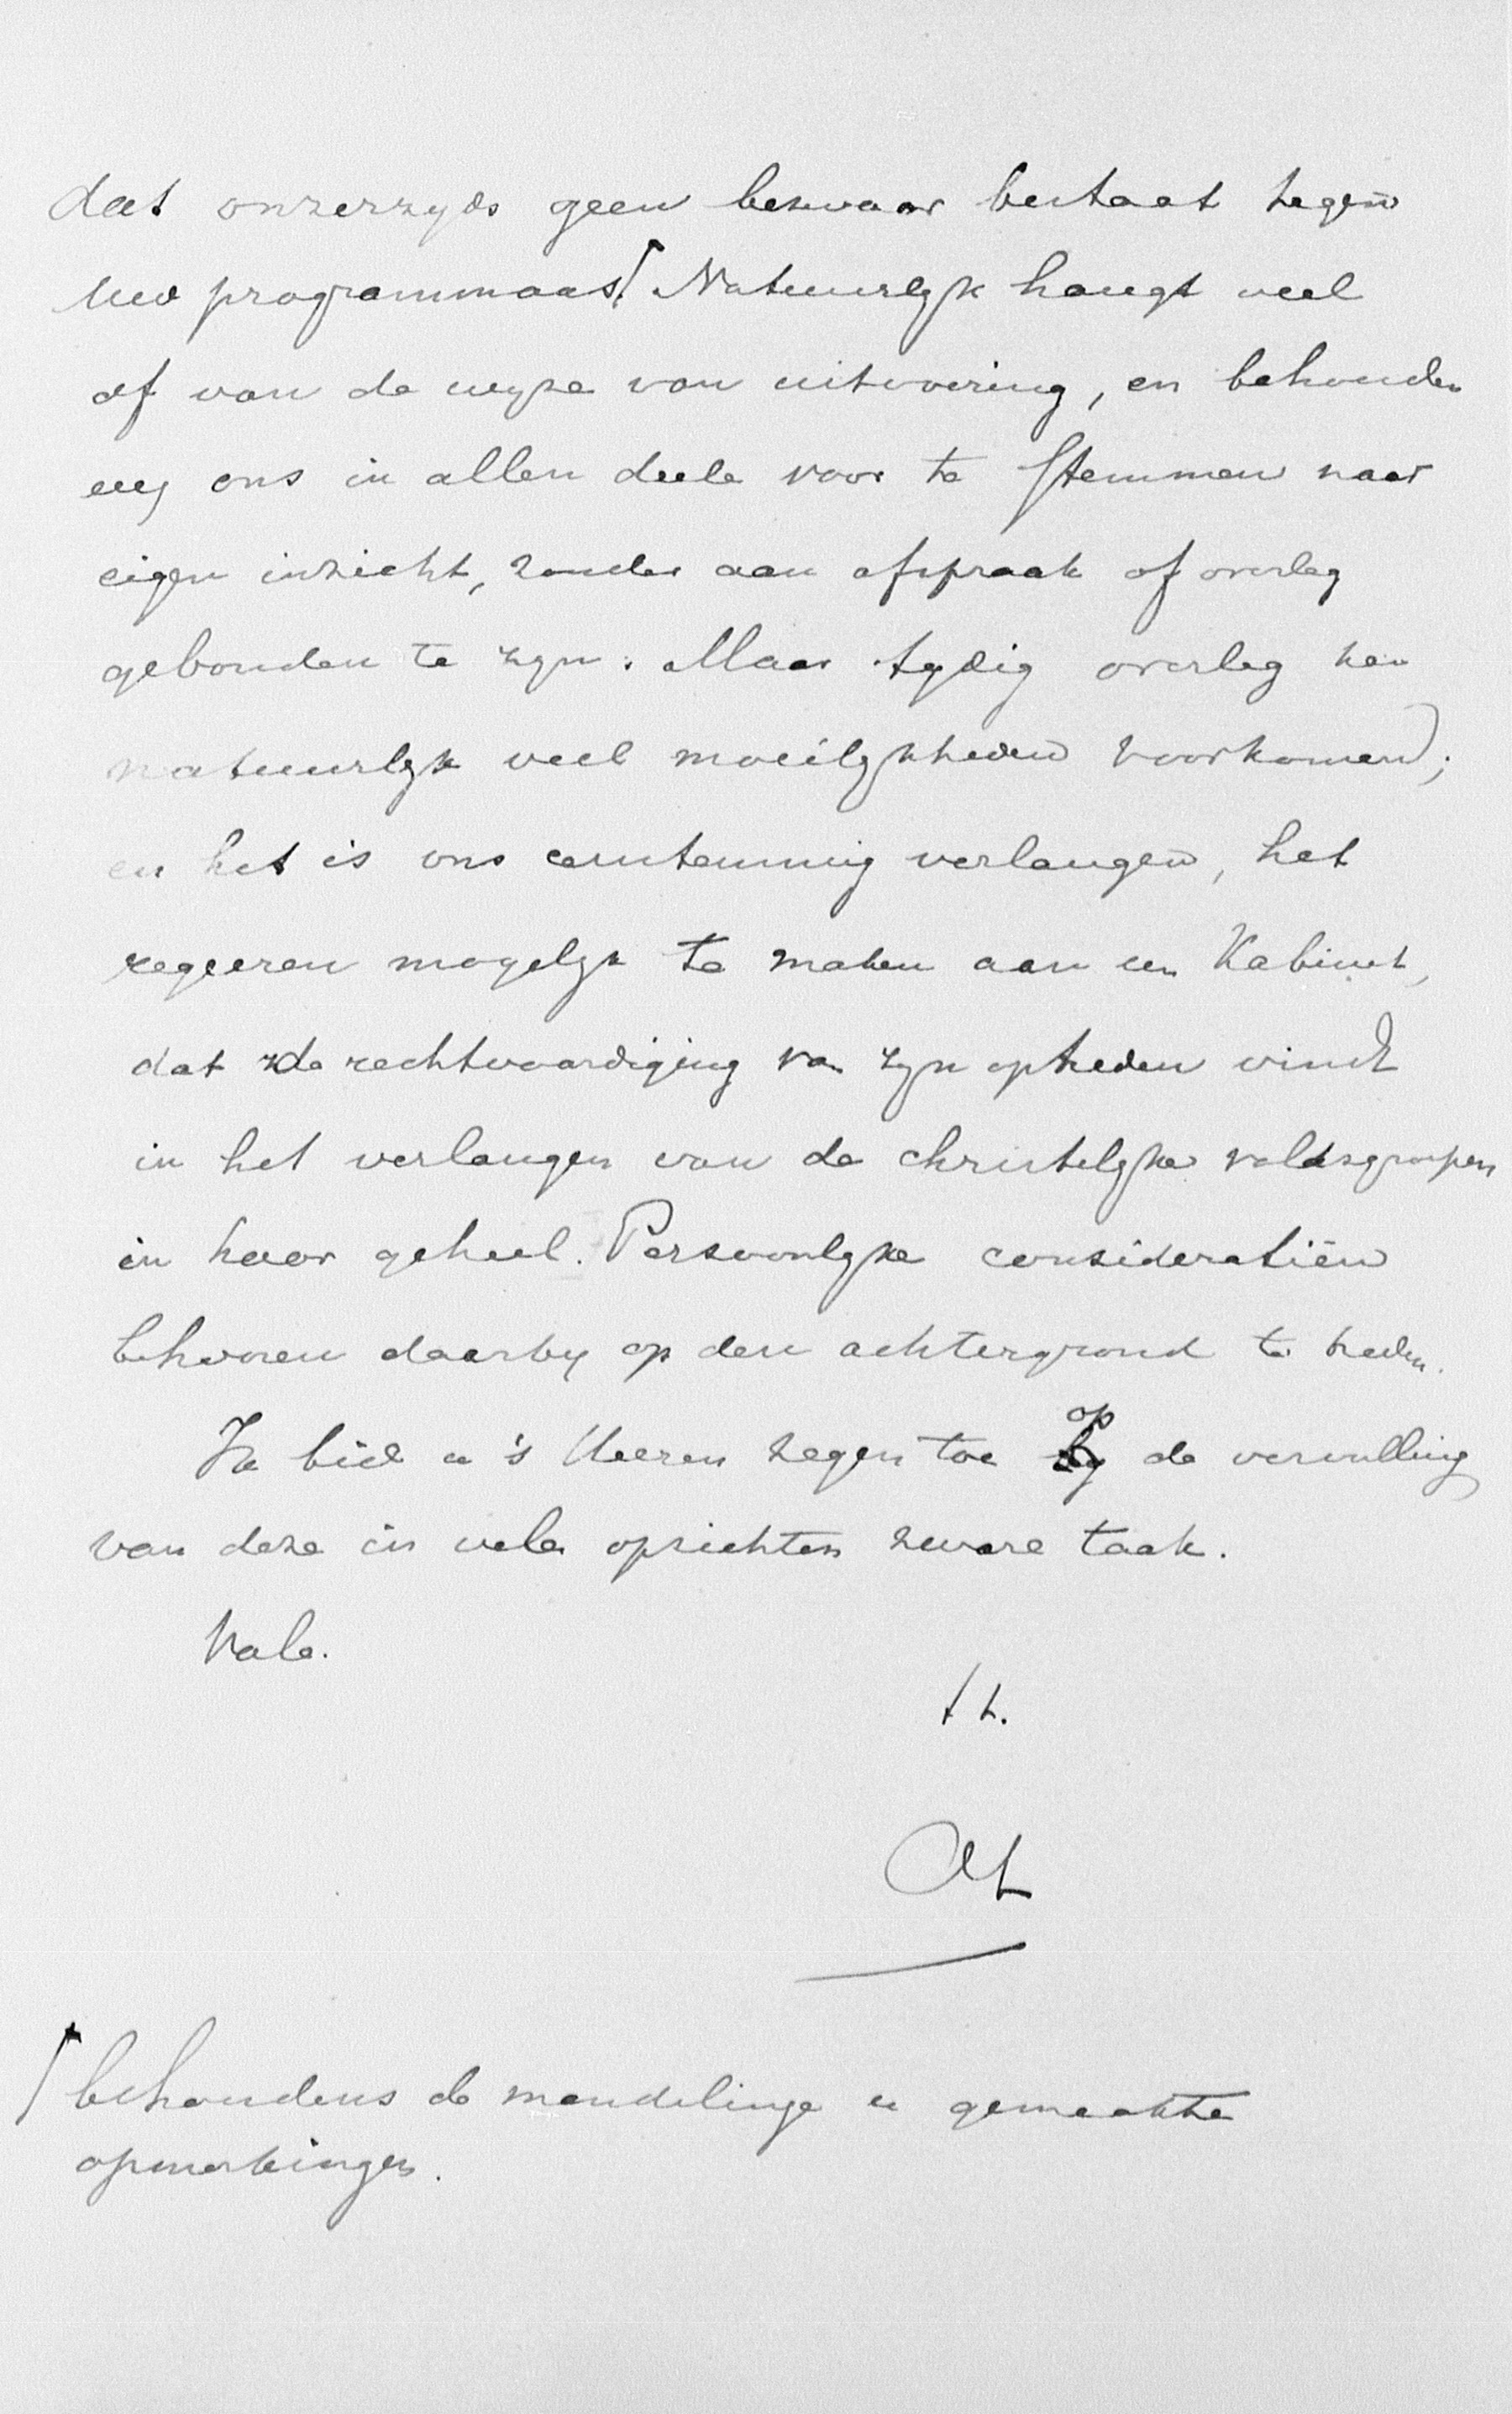 dat onzerzyds geen bezwaar bestaat tegen
Uw programmaas. Natuurlyk hangt veel
af van de wyze van uitvoering, en behouden
wy ons in allen deele voor te stemmen naar
eigen inzicht, zonder aan afspraak of overleg
gebonden te zyn. Maar tydig overleg kan
natuurlyk veel moeilykheden voorkomen;
en het is ons eenstemmig verlangen, het
regeeren mogelyk te maken aan een Kabinet,
dat de rechtvaardiging van zyn optreden vindt
in het verlangen van de christelyke volksgroepen
in haar geheel. Persoonlyke consideratiën
behooren daarby op den achtergrond te treden.
Ik bid u 's Heeren zegen toe op de vervulling
van deze in vele opzichten zware taak.
Vale.
t t.
AL
behoudens de mondelinge u gemaakte
opmerkingen.